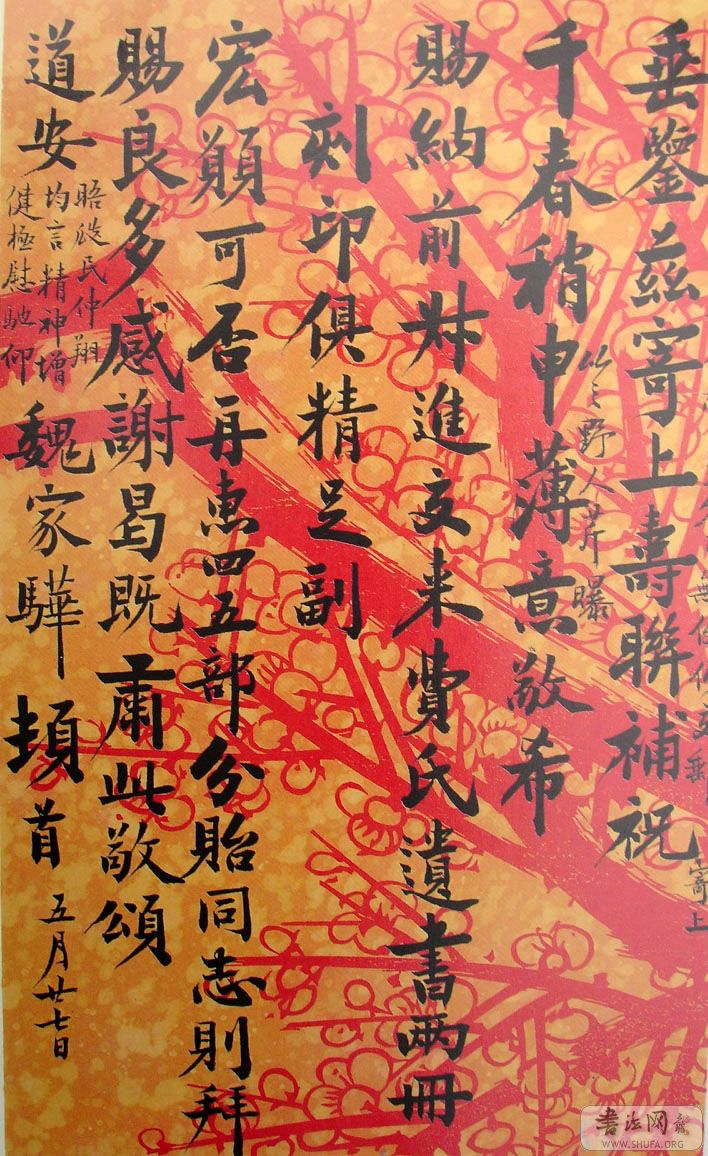 垂鑒茲寄上壽聯補祝
千春稍申薄意敬希
以之野人芹曝
賜納前材進文来費氏遺書兩冊
刻印俱精足副
宏願可否再惠四五部分貽同志則拜
賜良多感謝曷既肅此敬頌
道安
晤 民仲翔
均言精神增
健極慰馳仰
魏家驊頓首
五月廿七日
寄上
書法网
WWW.SHUFA.ORG